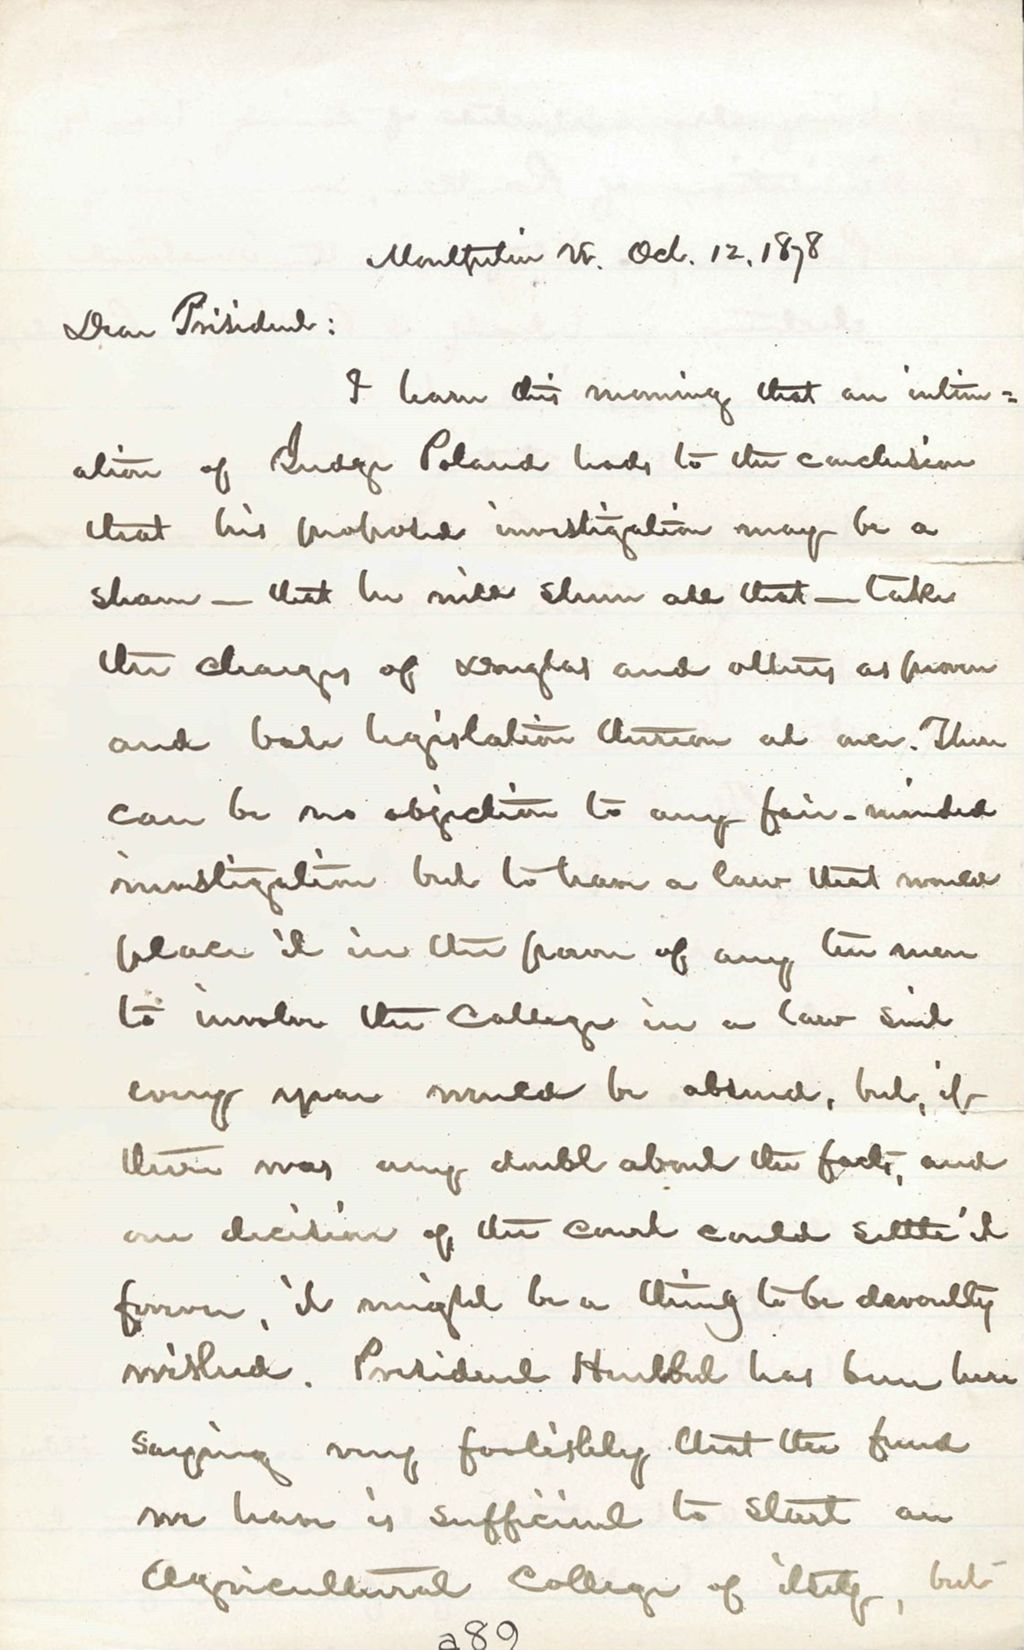 Montpelier Vt. Oct. 12, 1878
Dear President:
I learn this morning that an intim=
ation of Judge Poland leads to the conclusion
that his proposed investigation may be a
sham — that he will shun all that — take
the charges of Douglas and others as proven
and base legislation thereon at once. There
can be no objection to any fair-minded
investigation but to have a law that would
place it in the power of any ten men
to involve the College in a law suit
every year would be absurd, but, if
there was any doubt about the facts, and
one decision of the court could settle it
forever, it might be a thing to be devoutly
wished. President Hulbert has been here
saying very foolishly that the fund
we have is sufficient to start an
Agricultural College of itself, but
a89